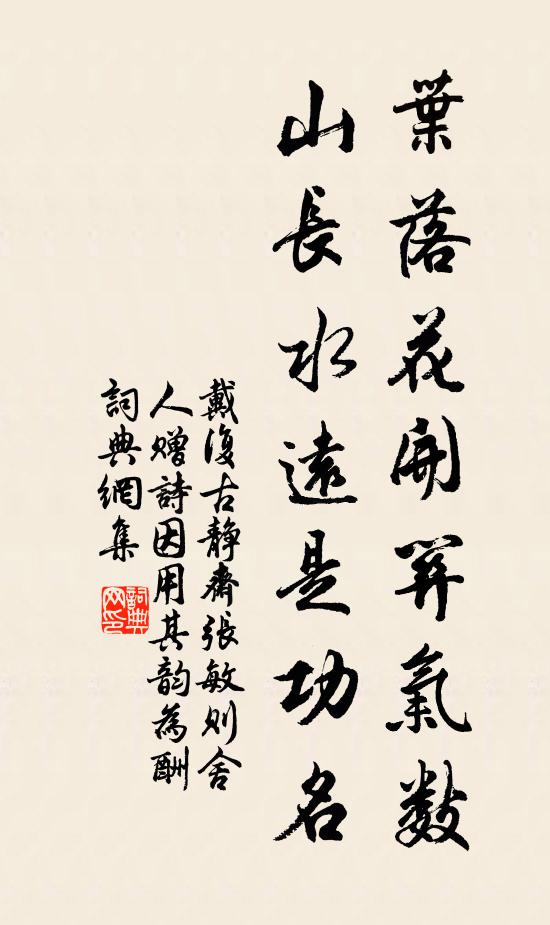 葉落花開關氣數
山長水遠是功名
戴復古静齋張敏則舍
人贈詩因用其韵為酬
詞典網集
詞典网印